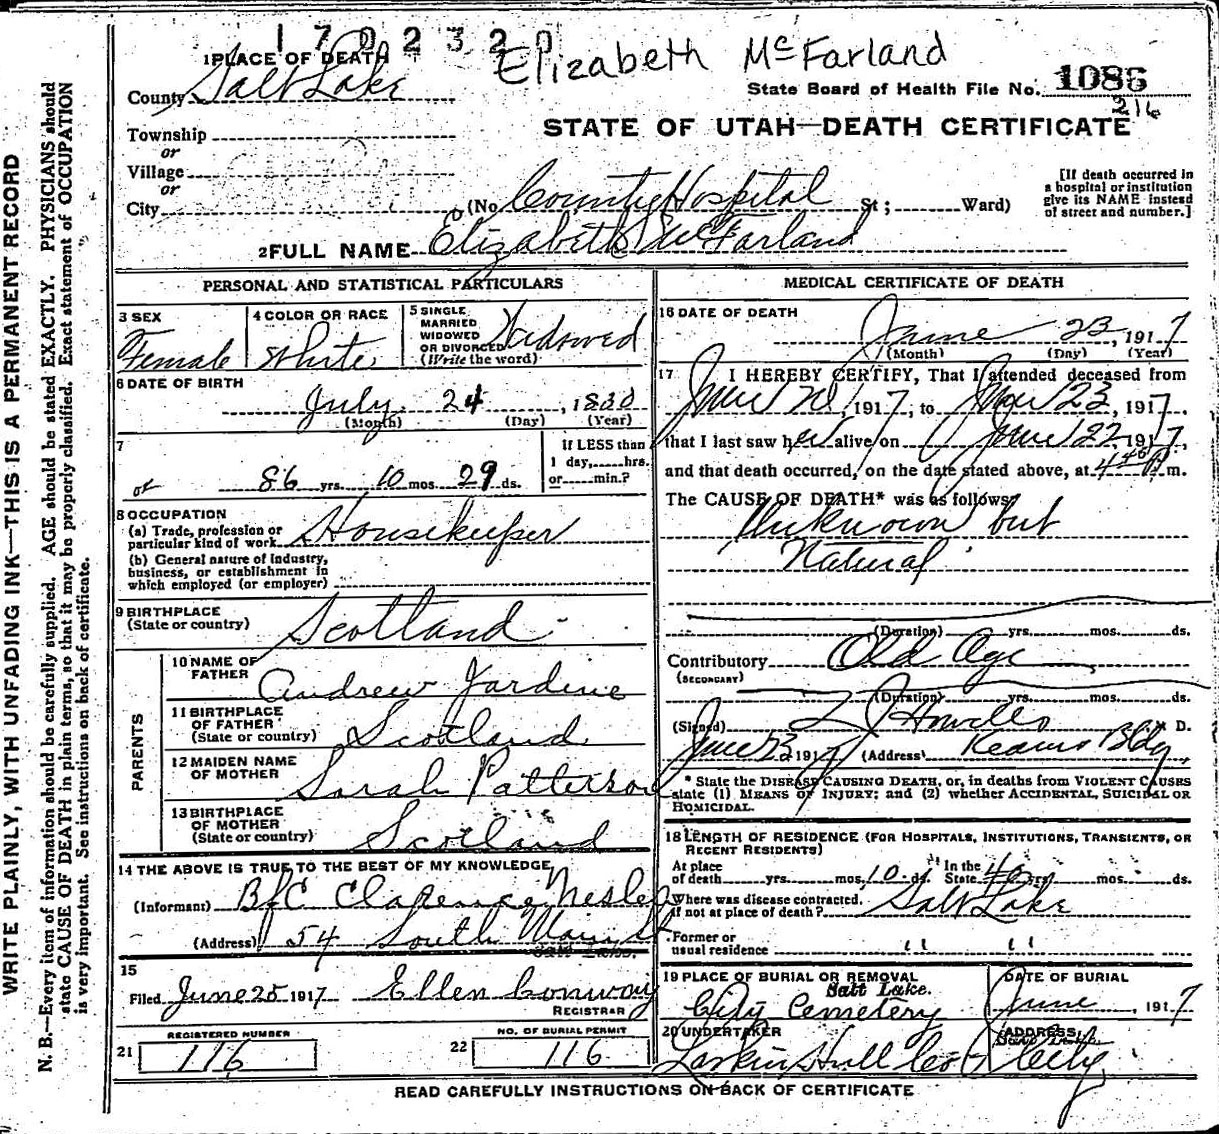 1702320
Elizabeth McFarland
1 PLACE OF DEATH
County Salt Lake
State Board of Health File No. 1086
216
Township
or
Village
or
City
STATE OF UTAH—DEATH CERTIFICATE
(No. County Hospital St; Ward)
[If death occurred in
a hospital or institution
give its NAME instead
of street and number.]
2 FULL NAME Elizabeth McFarland
PERSONAL AND STATISTICAL PARTICULARS
3 SEX
Female
4 COLOR OR RACE
White
5 SINGLE
MARRIED
WIDOWED
OR DIVORCED
(Write the word)
Widowed
6 DATE OF BIRTH
July 24, 1830
(Month) (Day) (Year)
7
86 yrs. 10 mos. 29 ds.
If LESS than
1 day, hrs.
or min.?
8 OCCUPATION
(a) Trade, profession or
particular kind of work Housekeeper
(b) General nature of industry,
business, or establishment in
which employed (or employer)
9 BIRTHPLACE
(State or country) Scotland
PARENTS
10 NAME OF
FATHER Andrew Jardine
11 BIRTHPLACE
OF FATHER
(State or country) Scotland
12 MAIDEN NAME
OF MOTHER Sarah Patterson
13 BIRTHPLACE
OF MOTHER
(State or country) Scotland
14 THE ABOVE IS TRUE TO THE BEST OF MY KNOWLEDGE
(Informant) Clarence Neslen
(Address) 54 South Main St
15
Filed June 25 1917 Ellen Conway
REGISTRAR
REGISTERED NUMBER
21 116
NO. OF BURIAL PERMIT
22 116
MEDICAL CERTIFICATE OF DEATH
16 DATE OF DEATH
June 23, 1917
(Month) (Day) (Year)
17 I HEREBY CERTIFY, That I attended deceased from
June 1917, to June 23, 1917,
that I last saw her alive on June 22, 1917,
and that death occurred, on the date stated above, at m.
The CAUSE OF DEATH* was as follows:
Unknown but
Natural
(Duration) yrs. mos. ds.
Contributory Old Age
(SECONDARY)
(Duration) yrs. mos. ds.
(Signed) Howells M. D.
June 23 1917 (Address) Kearns Bldg
* State the DISEASE CAUSING DEATH, or, in deaths from VIOLENT CAUSES
state (1) MEANS OF INJURY; and (2) whether ACCIDENTAL, SUICIDAL OR
HOMICIDAL.
18 LENGTH OF RESIDENCE (FOR HOSPITALS, INSTITUTIONS, TRANSIENTS, OR
RECENT RESIDENTS)
At place
of death yrs. mos. 10 ds.
In the
State 40 yrs. mos. ds.
Where was disease contracted,
if not at place of death? Salt Lake
Former or
usual residence " "
19 PLACE OF BURIAL OR REMOVAL
Salt Lake.
City Cemetery
DATE OF BURIAL
June , 1917
20 UNDERTAKER
Larkin Hull Co
ADDRESS
Salt Lake
City
READ CAREFULLY INSTRUCTIONS ON BACK OF CERTIFICATE
WRITE PLAINLY, WITH UNFADING INK—THIS IS A PERMANENT RECORD
N. B.—Every item of information should be carefully supplied. AGE should be stated EXACTLY. PHYSICIANS should
state CAUSE OF DEATH in plain terms, so that it may be properly classified. Exact statement of OCCUPATION
is very important. See instructions on back of certificate.